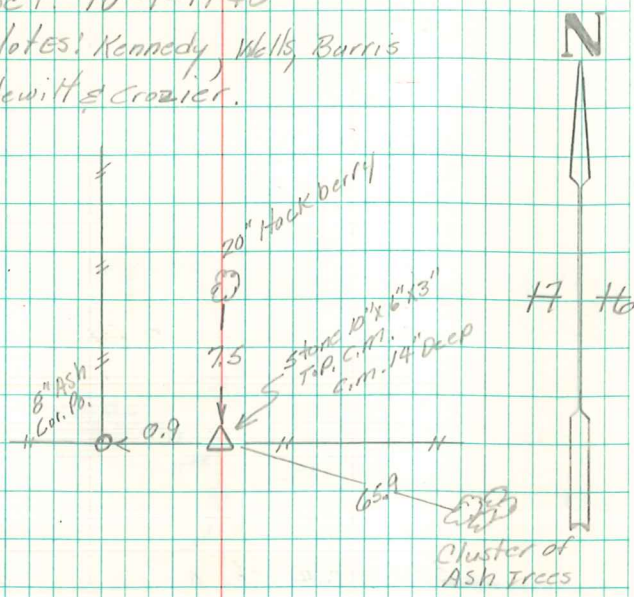 Notes: Kennedy, Wells, Burris
Hewitt & Crozier.
N
20" Hackberry
17 16
7.5
Stone 10" x 6" x 3"
T.P. C.M.
C.M. 14" Deep
8" Ash
Cor. Po.
0.9
65.9
Cluster of
Ash Trees